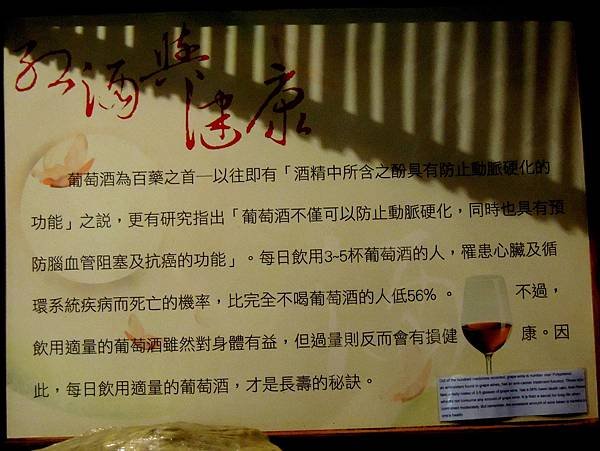 紅酒與健康
葡萄酒為百藥之首─以往即有「酒精中所含之酚具有防止動脈硬化的
功能」之說，更有研究指出「葡萄酒不僅可以防止動脈硬化，同時也具有預
防腦血管阻塞及抗癌的功能」。每日飲用3~5杯葡萄酒的人，罹患心臟及循
環系統疾病而死亡的機率，比完全不喝葡萄酒的人低56% 。 不過，
飲用適量的葡萄酒雖然對身體有益，但過量則反而會有損健 康。因
此，每日飲用適量的葡萄酒，才是長壽的秘訣。